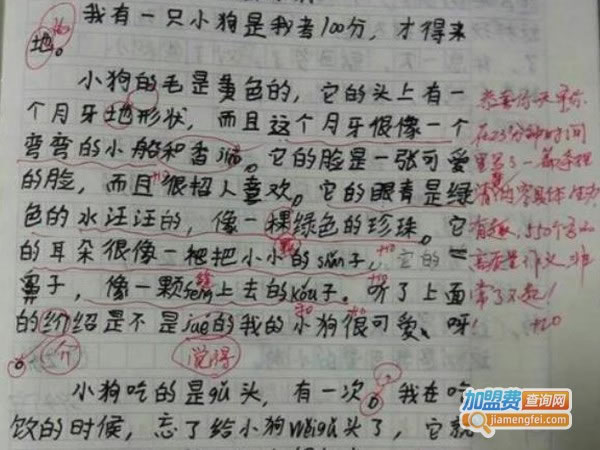 我有一只小狗是我考100分，才得来
地。
小狗的毛是黄色的，它的头上有一
个月牙地形状，而且这个月牙很像一个
弯弯的小船和香蕉。它的脸是一张可爱
的脸，而且很招人喜欢。它的眼青是绿
色的水汪汪的，像一棵绿色的珍珠。它
的耳朵很像一把把小小的sǎn子，它的
鼻子，像一颗féng上去的kòu子。听了上面
的介绍是不是jué的我的小狗很可爱、呀！
介
觉得
小狗吃的是gǔ头，有一次，我在吃
饮的时候，忘了给小狗wèigǔ头了，它就
在25分钟时间
有趣，550个字的
高质量作文，非
常了不起！
+20
加盟费查询网
jiamengfei.com